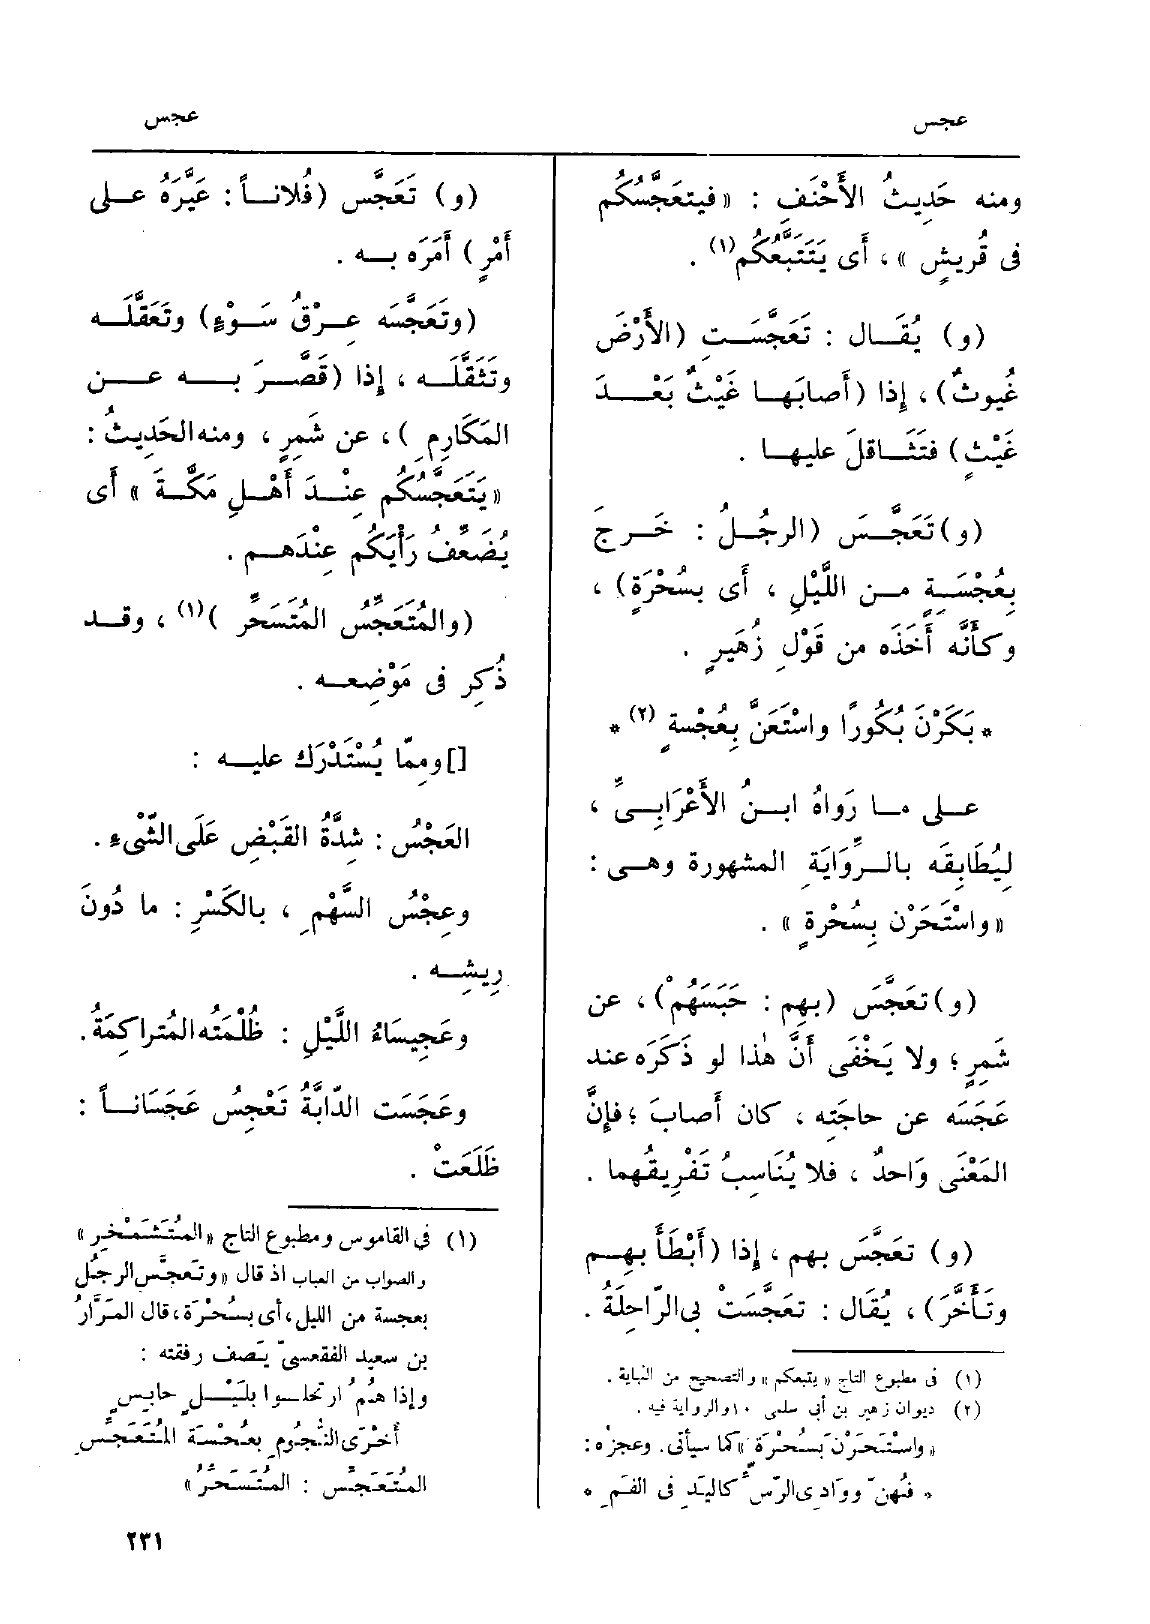 عجس
عجس
ومنه حَدِيثُ الأَحْنَفِ : « فيتعَجَّسُكُم
فى قُريشٍ » ، أَى يَتَتَبَّعُكُم (١) .
(و) يُقَــال : تَعَجَّسَــتِ (الأَرْضَ
غُيوثٌ) ، إِذا (أَصابَهــا غَيْثٌ بَعْــدَ
غَيْثٍ) فتَثَــاقلَ عليهــا .
(و) تَعَجَّــسَ (الرجُــلُ : خَــرجَ
بِعُجْسَــةٍ مــن اللَّيْلِ ، أَى بسُحْرَةٍ) ،
وكأَنَّه أَخَذَه من قَوْلِ زُهَيرٍ .
* بَكَرْنَ بُكُورًا واسْتَعَنَّ بِعُجْسةٍ (٢) *
علــى مــا رَوَاهُ ابــنُ الأَعْرَابِــىِّ ،
لِيُطَابِقَه بالــرِّوَايَةِ المشهورة وهــى :
« واسْتَحَرْن بِسُحْرةٍ » .
(و) تعَجَّسَ (بهِم : حَبَسَهُمْ) ، عن
شَمِرٍ ؛ ولا يَخْفَى أَنَّ هٰذا لو ذَكَرَه عند
عَجَسَه عن حاجَتِه ، كان أَصابَ ؛ فإِنَّ
المَعْنَى وَاحدٌ ، فلا يُنَاسِبُ تَفْرِيقُهما .
(و) تعَجَّسَ بهم ، إِذا (أَبْطَأَ بهِــم
وتَأَخَّرَ) ، يُقَال : تعَجَّسَتْ بى الرّاحِلَةُ .
(١) فى مطبوع التاج « يتبعكم » والتصحيح من النهاية .
(٢) ديوان زهير بن أبى سلمى ١٠ والرواية فيه .
« واسْتَحَرْنَ بسُحْرَةٍ » كما سيأتى . وعجزه :
* فهُنّ ووَادِى الرّسّ كاليَدِ فى الفَمِ *
(و) تَعَجَّس (فُلانــاً : عَيَّرَهُ علــى
أَمْرٍ) أَمَرَه بــه .
(وتَعَجَّسَه عِــرْقُ سَــوْءٍ) وتَعَقَّلَــه
وتَثَقَّلَــه ، إِذا (قَصَّرَ بــه عــن
المَكَارِمِ ) ، عن شَمِرٍ ، ومنه الحَدِيثُ :
« يَتَعَجَّسُكُم عِنْــدَ أَهْــلِ مَكَّــةَ » أَى
يُضَعِّفُ رَأْيَكُم عِنْدَهــم .
(والمُتَعَجِّسُ المُتَسَحِّر ) (١) ، وقــد
ذُكِر فى مَوْضِعــه .
[] ومِمّا يُسْتَدْرَك عليــه :
العَجْسُ : شِدَّةُ القَبْضِ عَلَى الشَّىْءِ .
وعِجْسُ السَّهْمِ ، بالكَسْرِ : ما دُونَ
رِيشِــه .
وعَجِيسَاءُ اللَّيْلِ : ظُلْمَتُه المُتراكِمَةُ .
وعَجَسَت الدّابَّةُ تَعْجِسُ عَجَسَانــاً :
ظَلَعَتْ .
(١) فى القاموس ومطبوع التاج « المُتَشَمْخِر »
والصواب من العباب اذ قال « وتَعجَّس الرجُل
بعجسة من الليل ، أى بسُحْرَة ، قال المَرَّارُ
بن سعيد الفقعسىّ يَصف رفقته :
وإذا هُمُ ارتحلــوا بلَيْــلٍ حابِسٍ
أُخْرَى النُّجُومِ بعُجْسَة المُتَعَجِّسِ
المُتَعَجِّس : المُتَسَحِّرُ »
٢٣١